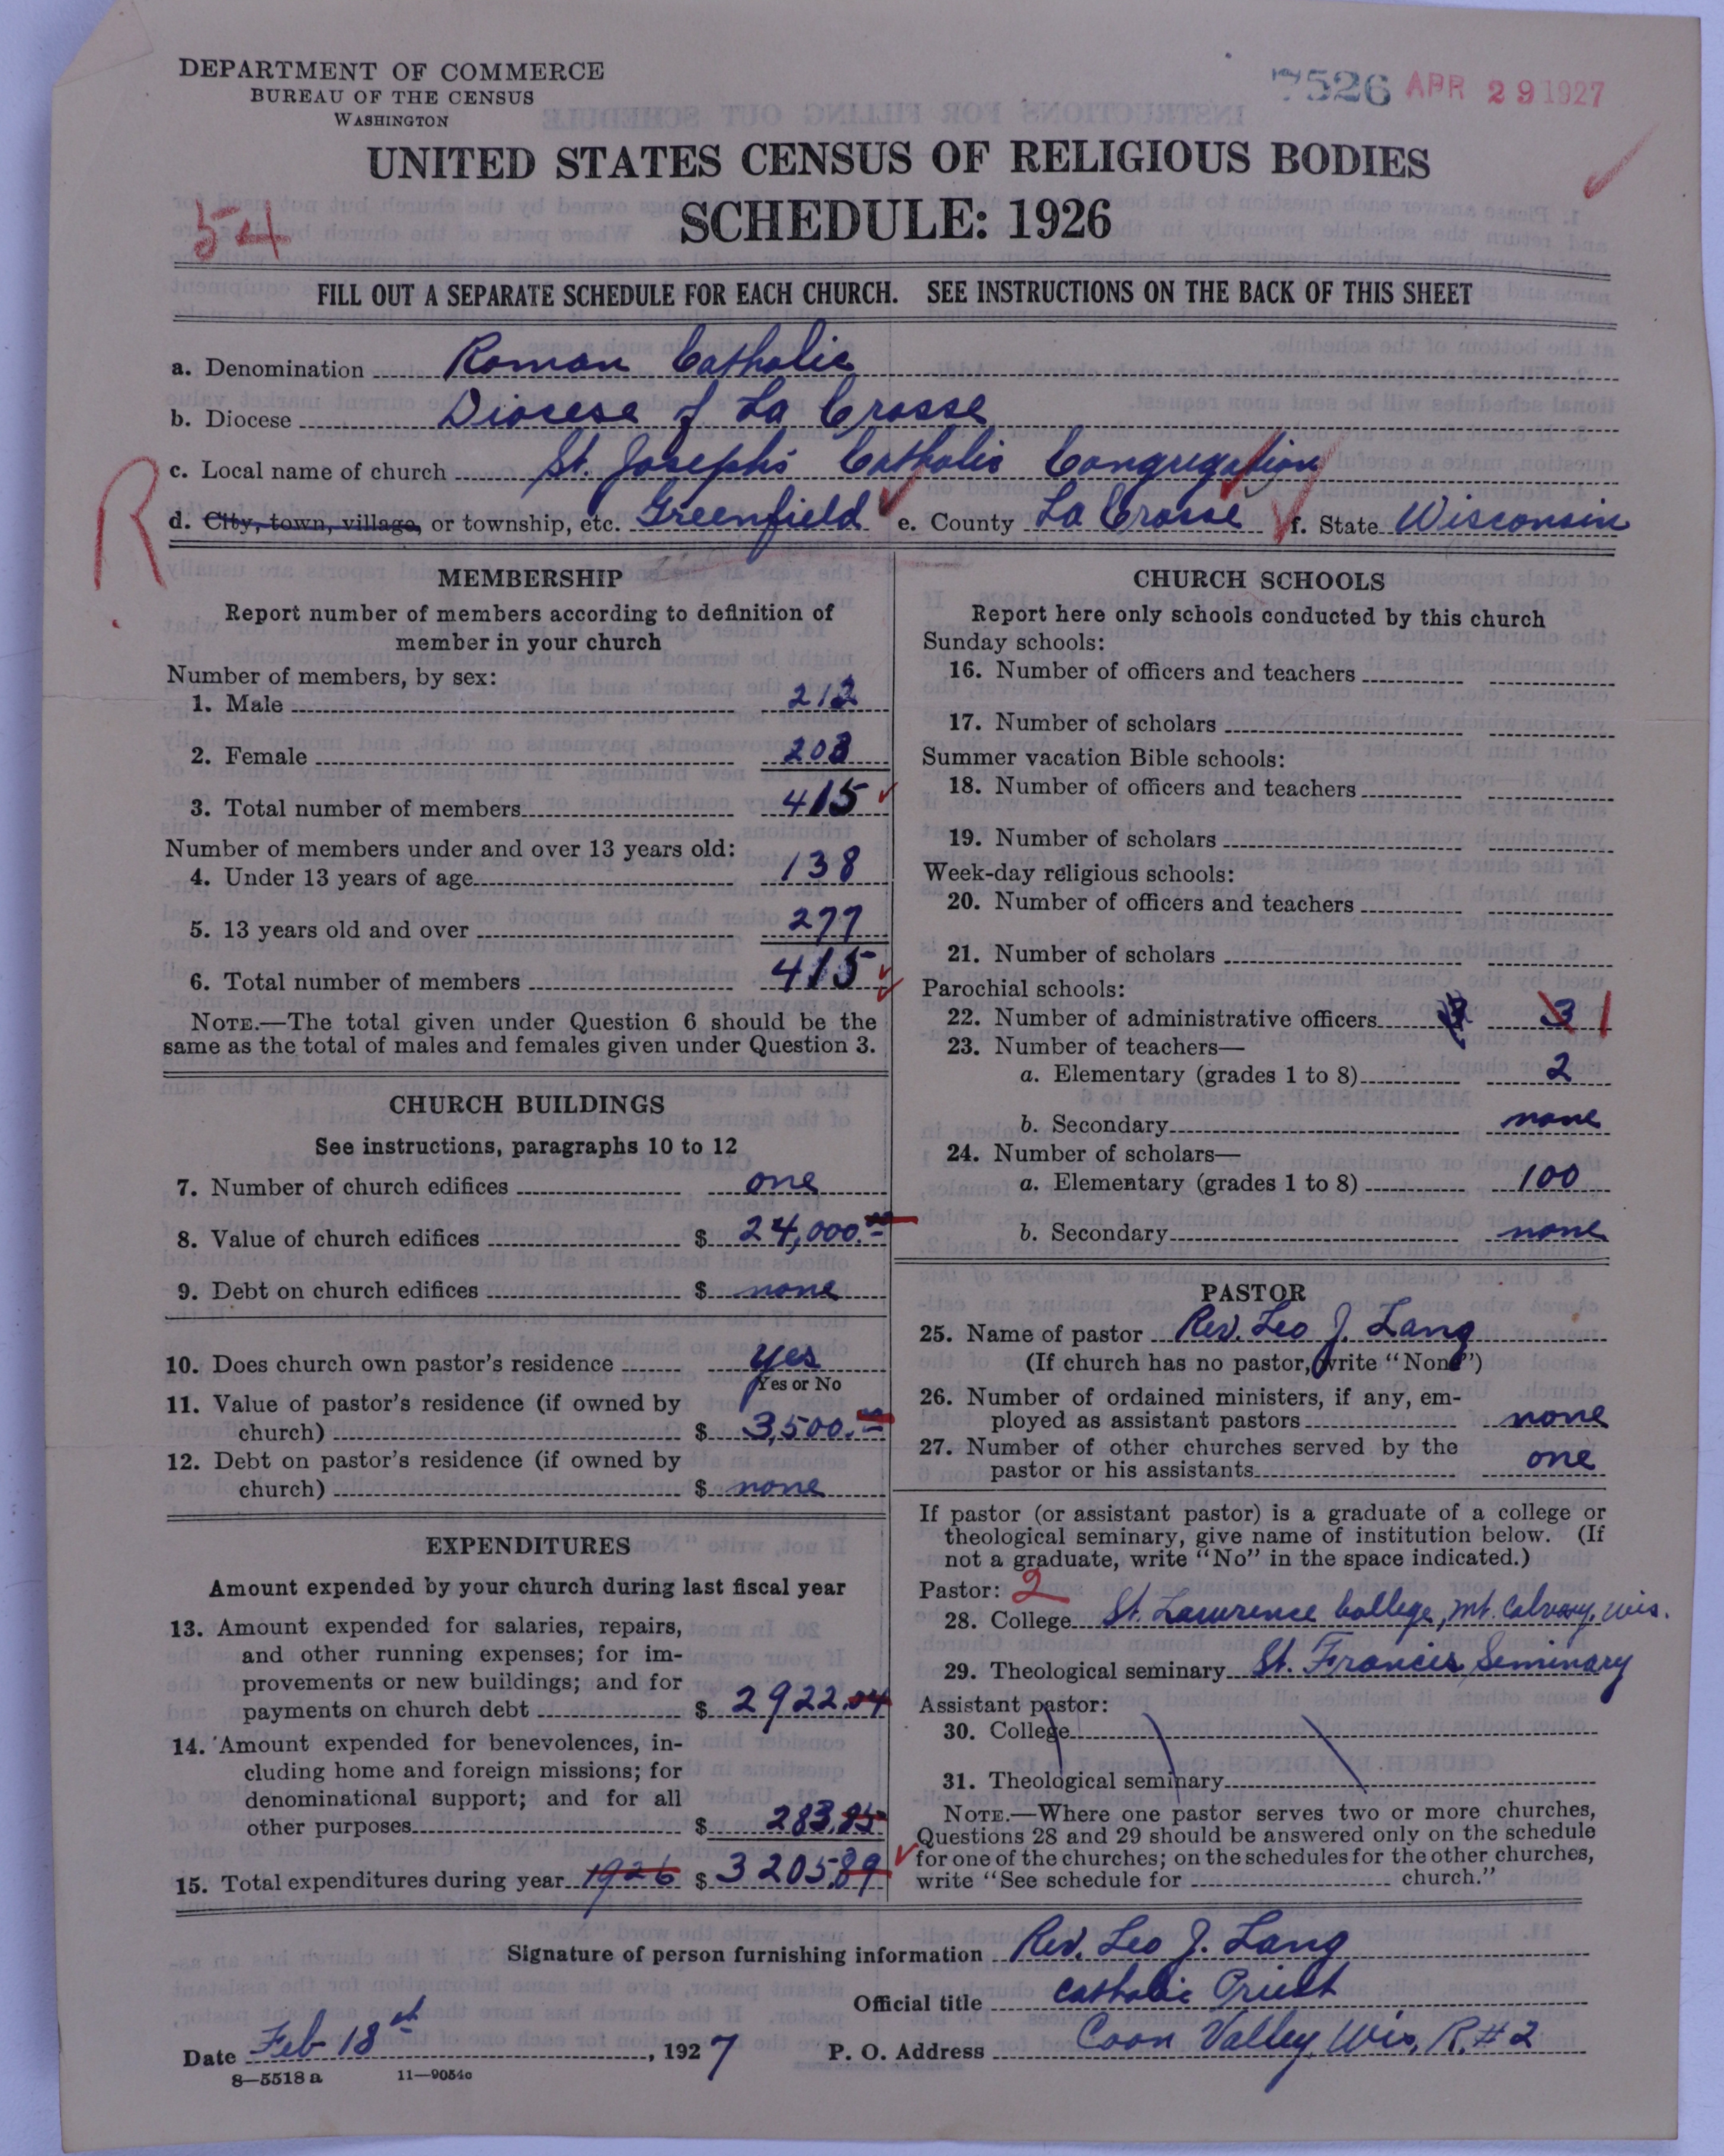 DEPARTMENT OF COMMERCE
BUREAU OF THE CENSUS
WASHINGTON
7526 APR 29 1927
UNITED STATES CENSUS OF RELIGIOUS BODIES
SCHEDULE: 1926
54
FILL OUT A SEPARATE SCHEDULE FOR EACH CHURCH. SEE INSTRUCTIONS ON THE BACK OF THIS SHEET
a. Denomination Roman Catholic
b. Diocese Diocese of La Crosse
c. Local name of church St. Joseph's Catholic Congregation
R
d. City, town, village, or township, etc. Greenfield e. County La Crosse f. State Wisconsin
MEMBERSHIP
Report number of members according to definition of
member in your church
Number of members, by sex:
1. Male 212
2. Female 203
3. Total number of members 415
Number of members under and over 13 years old:
4. Under 13 years of age 138
5. 13 years old and over 277
6. Total number of members 415
NOTE.—The total given under Question 6 should be the
same as the total of males and females given under Question 3.
CHURCH BUILDINGS
See instructions, paragraphs 10 to 12
7. Number of church edifices one
8. Value of church edifices $ 24,000.00
9. Debt on church edifices $ none
10. Does church own pastor's residence yes
Yes or No
11. Value of pastor's residence (if owned by
church) $ 3,500.00
12. Debt on pastor's residence (if owned by
church) $ none
EXPENDITURES
Amount expended by your church during last fiscal year
13. Amount expended for salaries, repairs,
and other running expenses; for im-
provements or new buildings; and for
payments on church debt $ 2922.04
14. Amount expended for benevolences, in-
cluding home and foreign missions; for
denominational support; and for all
other purposes $ 283.85
15. Total expenditures during year 1926 $ 3205.89
CHURCH SCHOOLS
Report here only schools conducted by this church
Sunday schools:
16. Number of officers and teachers
17. Number of scholars
Summer vacation Bible schools:
18. Number of officers and teachers
19. Number of scholars
Week-day religious schools:
20. Number of officers and teachers
21. Number of scholars
Parochial schools:
22. Number of administrative officers 3 1
23. Number of teachers—
a. Elementary (grades 1 to 8) 2
b. Secondary none
24. Number of scholars—
a. Elementary (grades 1 to 8) 100
b. Secondary none
PASTOR
25. Name of pastor Rev. Leo J. Lang
(If church has no pastor, write "None")
26. Number of ordained ministers, if any, em-
ployed as assistant pastors none
27. Number of other churches served by the
pastor or his assistants one
If pastor (or assistant pastor) is a graduate of a college or
theological seminary, give name of institution below. (If
not a graduate, write "No" in the space indicated.)
Pastor: 2
28. College St. Lawrence College, Mt. Calvary, Wis.
29. Theological seminary St. Francis Seminary
Assistant pastor:
30. College
31. Theological seminary
NOTE.—Where one pastor serves two or more churches,
Questions 28 and 29 should be answered only on the schedule
for one of the churches; on the schedules for the other churches,
write "See schedule for church."
Signature of person furnishing information Rev. Leo J. Lang
Official title Catholic Priest
Date Feb 18th, 1927 P. O. Address Coon Valley, Wis. R. #2
8—5518 a 11—9054c